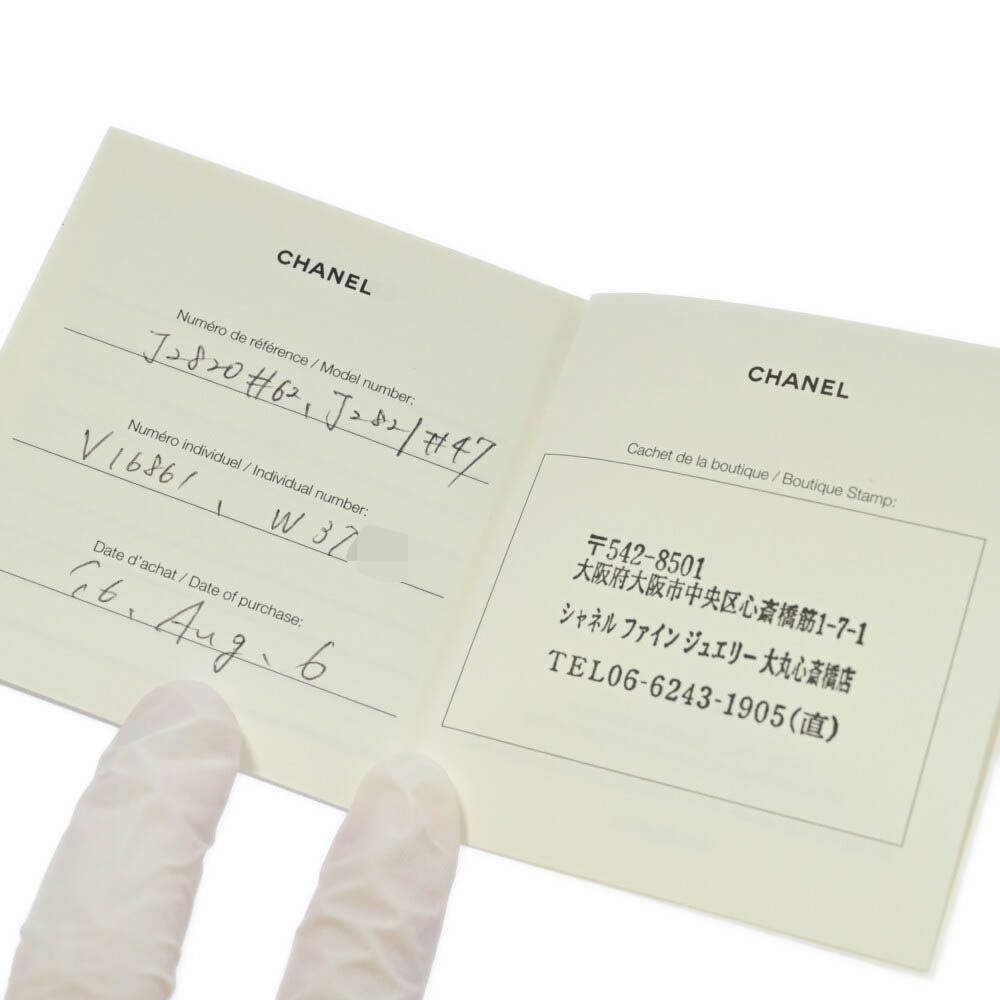 CHANEL
Numéro de référence / Model number:
J2820#62、J2821#47
Numéro individuel / Individual number:
V16861、W37
Date d'achat / Date of purchase:
Aug、6
CHANEL
Cachet de la boutique / Boutique Stamp:
〒542-8501
大阪府大阪市中央区心斎橋筋1-7-1
シャネル ファイン ジュエリー 大丸心斎橋店
TEL06-6243-1905(直)